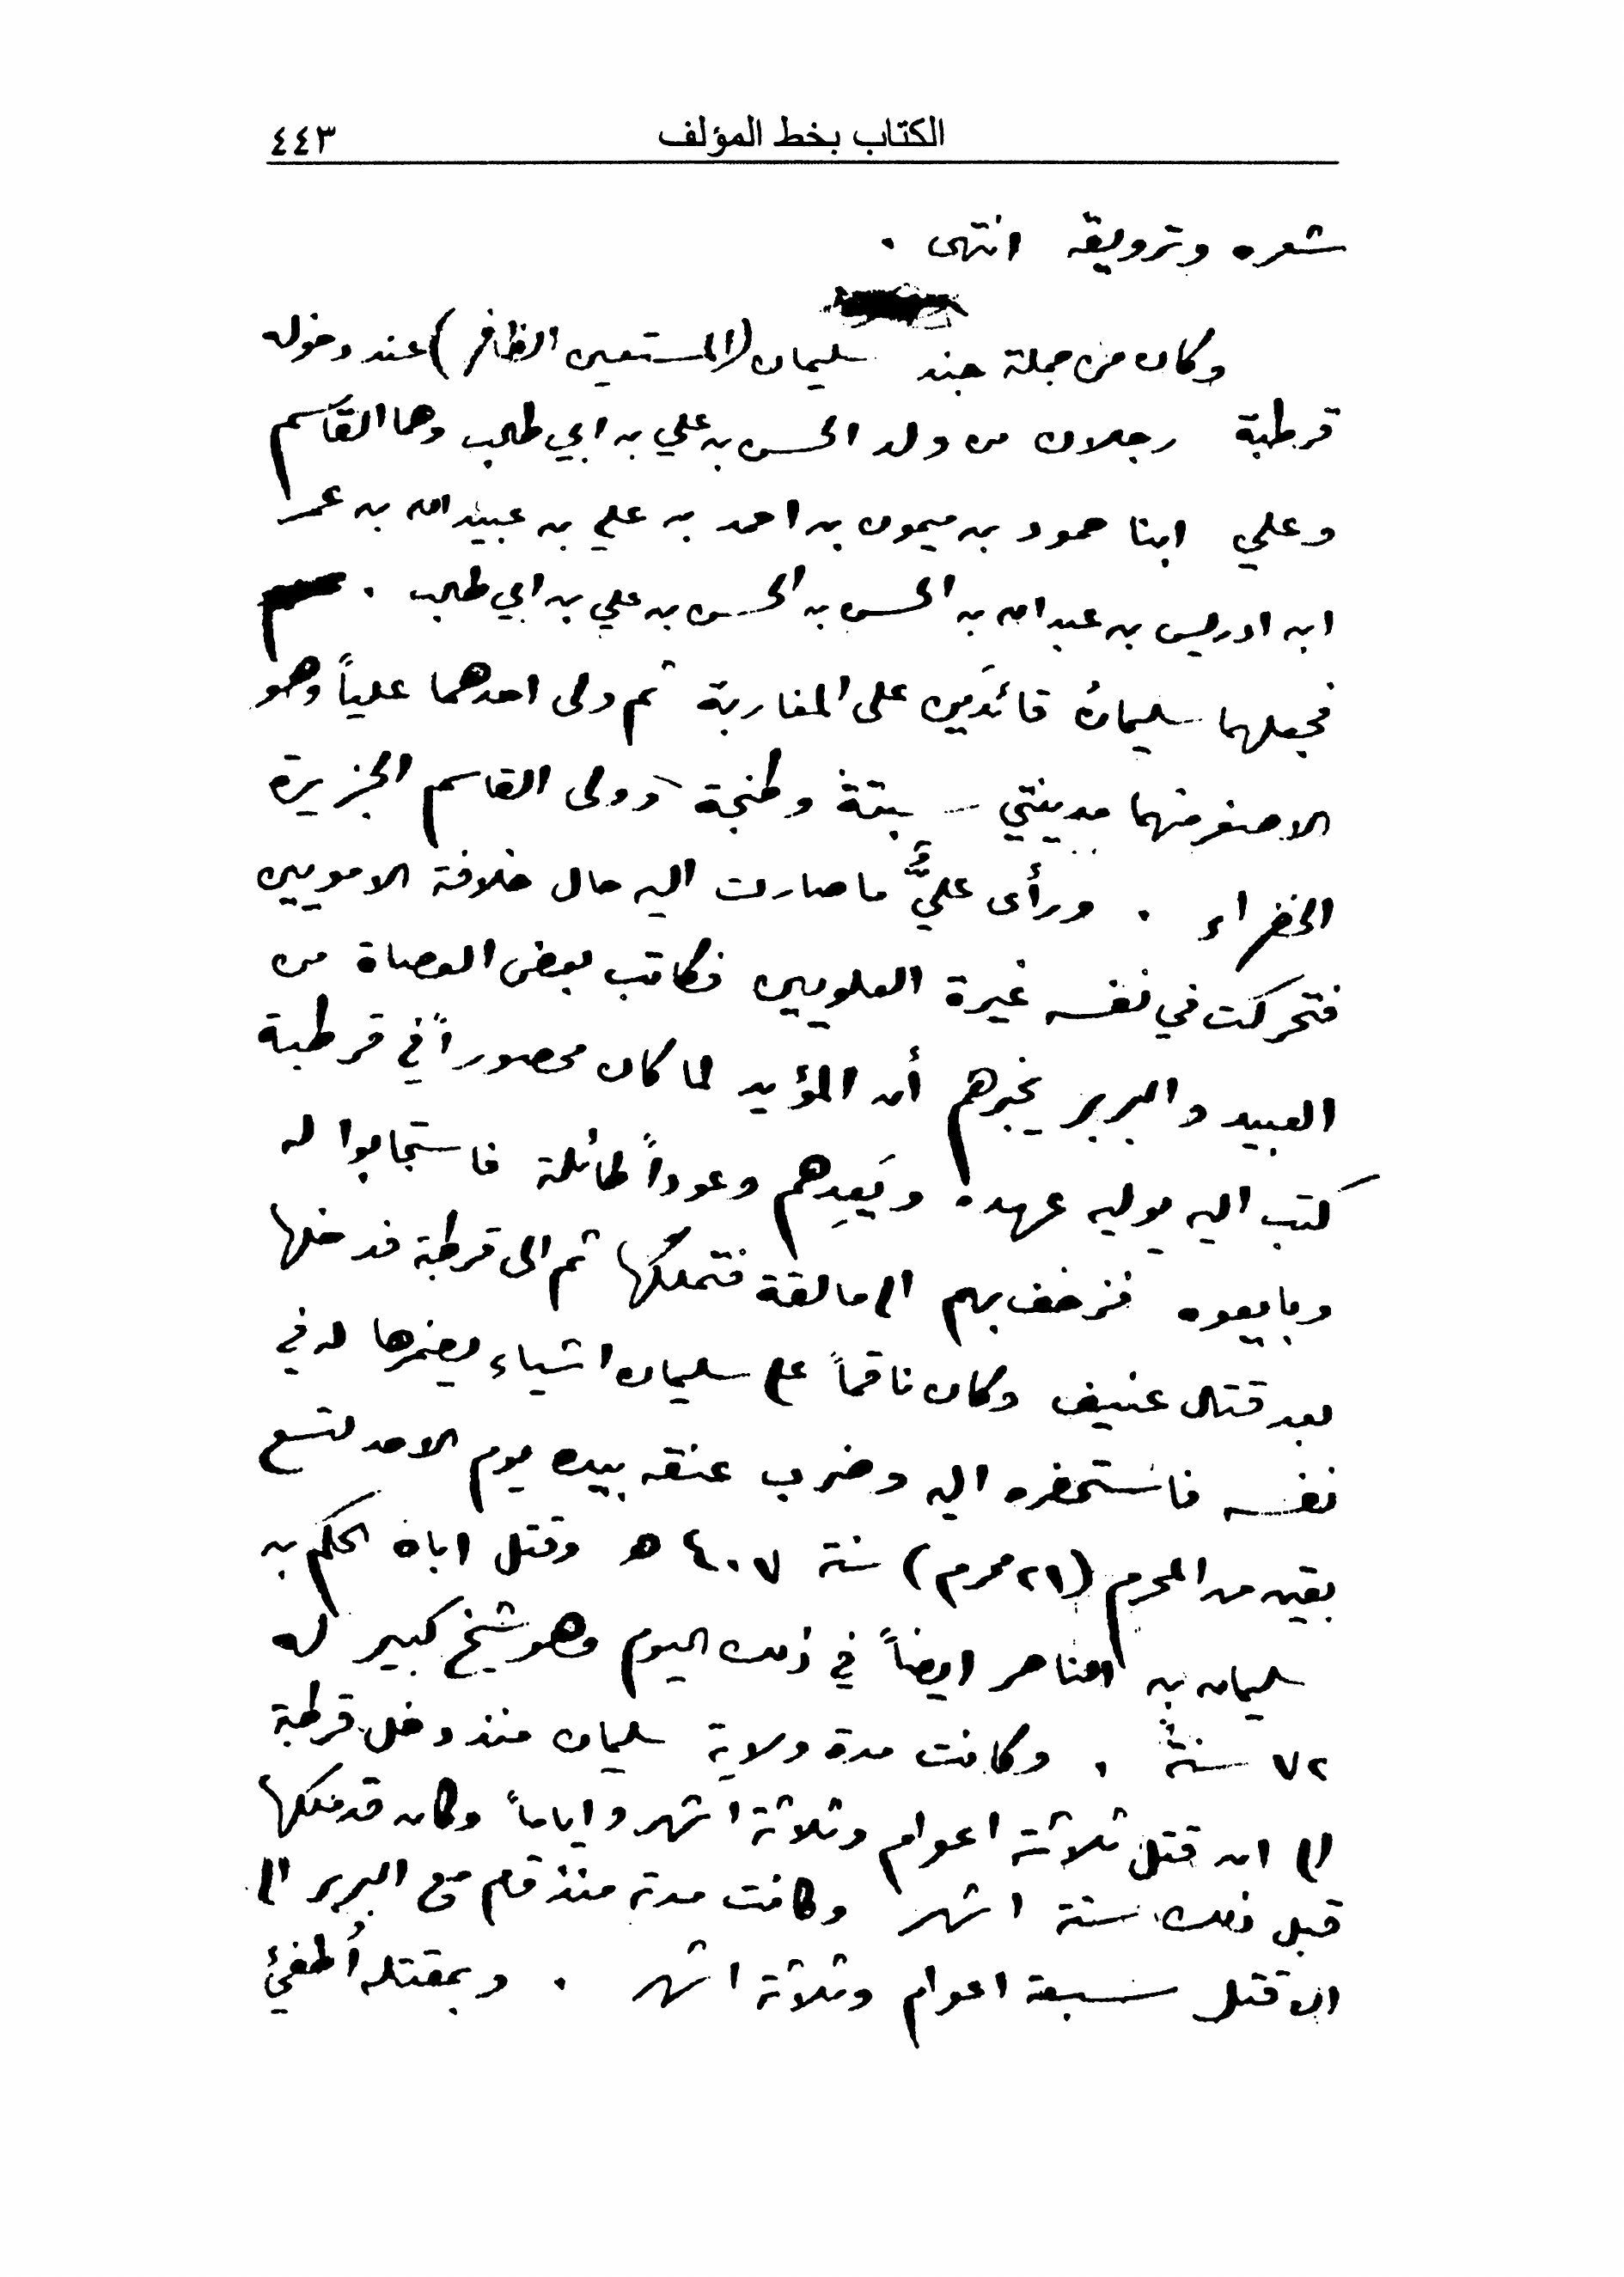 الكتاب بخط المؤلف ٤٤٣
شعره وترويقه انتهى .
وكان من جملة جند سليمان (المستعين الظافر) عند دخوله
قرطبة رجلان من ولد الحسن بن علي بن ابي طالب وهما القاسم
وعلي ابنا حمود بن ميمون بن احمد بن علي بن عبيد الله بن عمر
ابن ادريس بن عبد الله بن الحسن بن الحسن بن علي بن ابي طالب .
فجعلهما سليمانُ قائدَين على المغاربة ثم ولى احدهما علياً وهو
الاصغر منهما مدينتي سبتة وطنجة وولى القاسم الجزيرة
الخضراء . ورأى عليٌّ ما صارت اليه حال خلافة الامويين
فتحركت في نفسه غيرة العلويين فكاتب بعض العصاة من
العبيد والبربر يخبرهم أن المؤيد لما كان محصوراً في قرطبة
كتب اليه يوليه عهده ويَعِدهم وعوداً طائلة فاستجابوا له
وبايعوه فزحف بهم الى مالقة فتملكها ثم الى قرطبة فدخلها
بعد قتال عنيف وكان ناقماً على سليمان اشياء يضمرها له في
نفسه فاستحضره اليه وضرب عنقه بيده يوم الاحد لتسع
بقين من المحرم (٢١ محرم) سنة ٤٠٧ ه وقتل اباه الحكم بن
سليمان بن الناصر ايضاً في ذلك اليوم وهو شيخ كبير له
٧٢ سنةً . وكانت مدة ولاية سليمان منذ دخل قرطبة
الى ان قتل ثلاثة اعوام وثلاثة اشهر واياماً وكان قد ملكها
قبل ذلك ستة اشهر وكانت مدته منذ قام مع البربر الى
ان قتل سبعة اعوام وثلاثة اشهر . وبمقتله أُطفئ